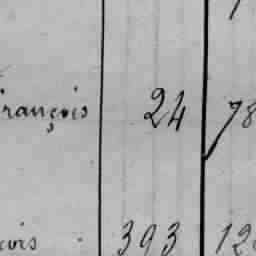 rançois 24 78
393 12